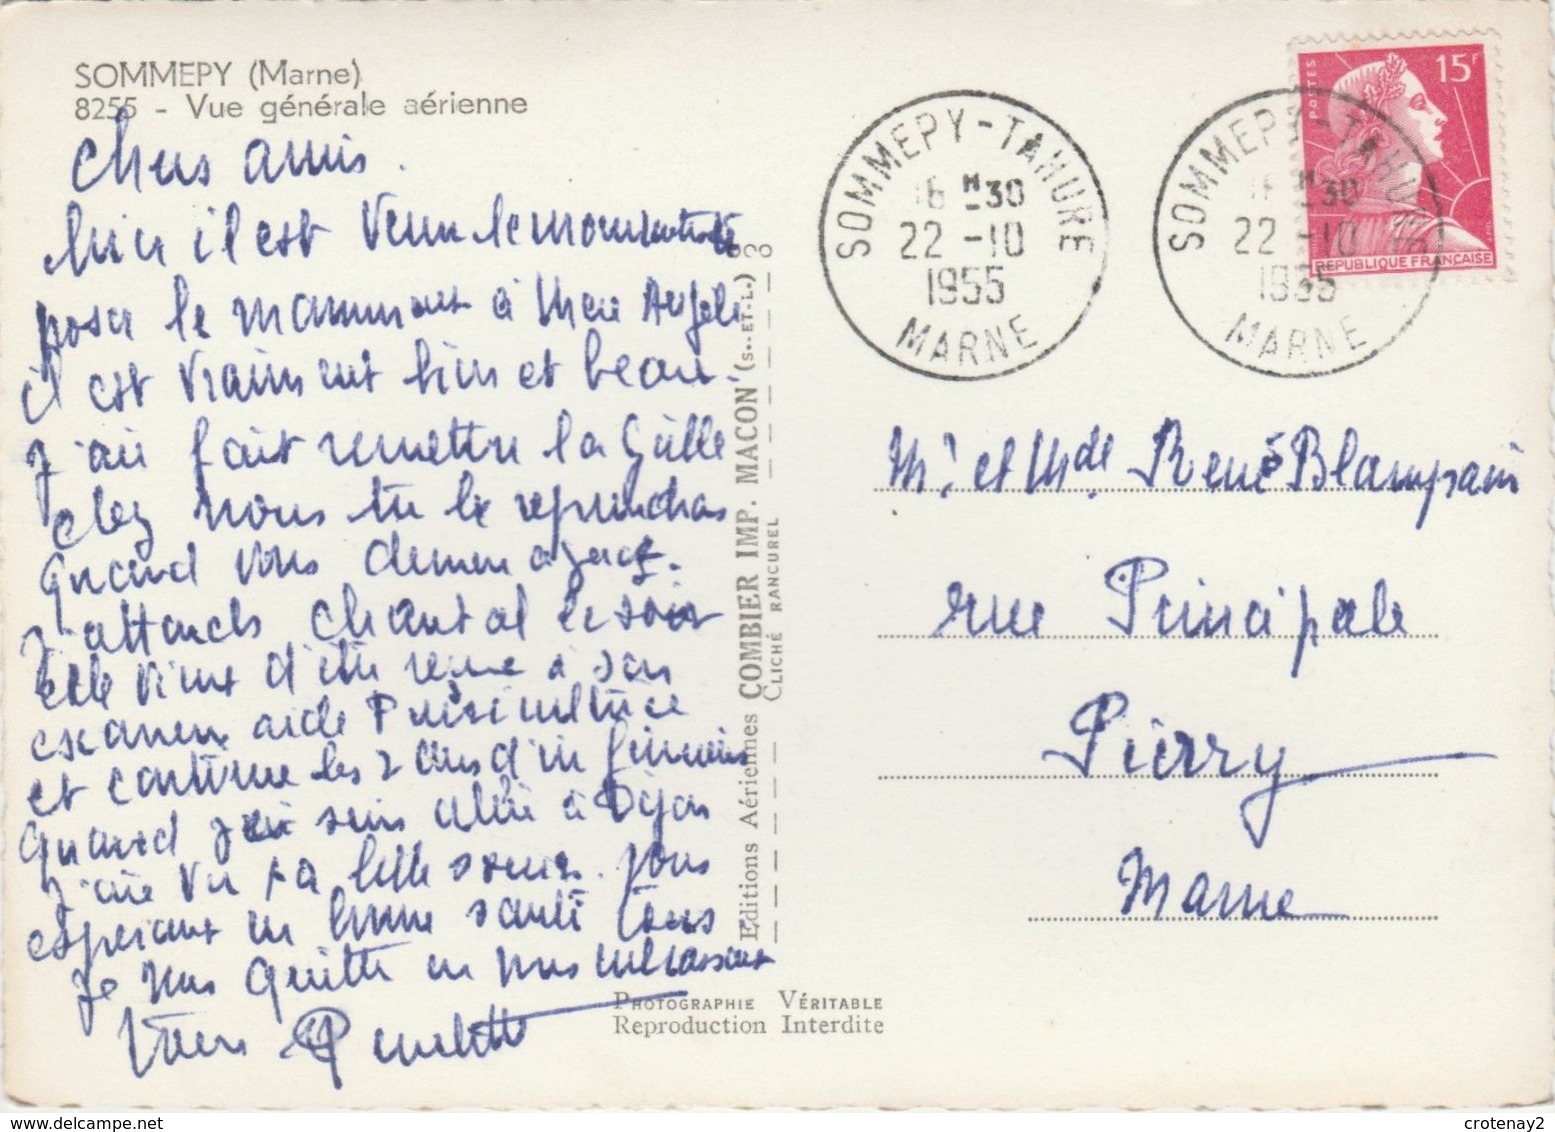 SOMMEPY (Marne)
8255 - Vue générale aérienne
Chers amis.
hier il est venu le monument
poser le monument à Mere Angele
il est vraiment bien et beau.
J'ai fait remettre la Grille
chez nous tu le reprendras
quand vous demenagerez.
J'attends Chantal le soir
elle vient d'être reçue à son
examen aide Puericultrice
et continue les 2 ans d'infirmière
quand je suis allée à Dijon
J'ai vu ta belle soeur. Vous
esperant en bonne santé tous
Je vous quitte en vous embrassant
Paulette
Editions Aériennes COMBIER IMP. MACON (S.-ET-L.)
CLICHÉ RANCUREL
PHOTOGRAPHIE VÉRITABLE
Reproduction Interdite
SOMMEPY-TAHURE
16 H 30
22 -10
1955
MARNE
SOMMEPY-TAHURE
16 H 30
22 -10
1955
MARNE
POSTES
15F
REPUBLIQUE FRANÇAISE
Mr. et Mde René Blampain
rue Principale
Pierry
Marne
crotenay2